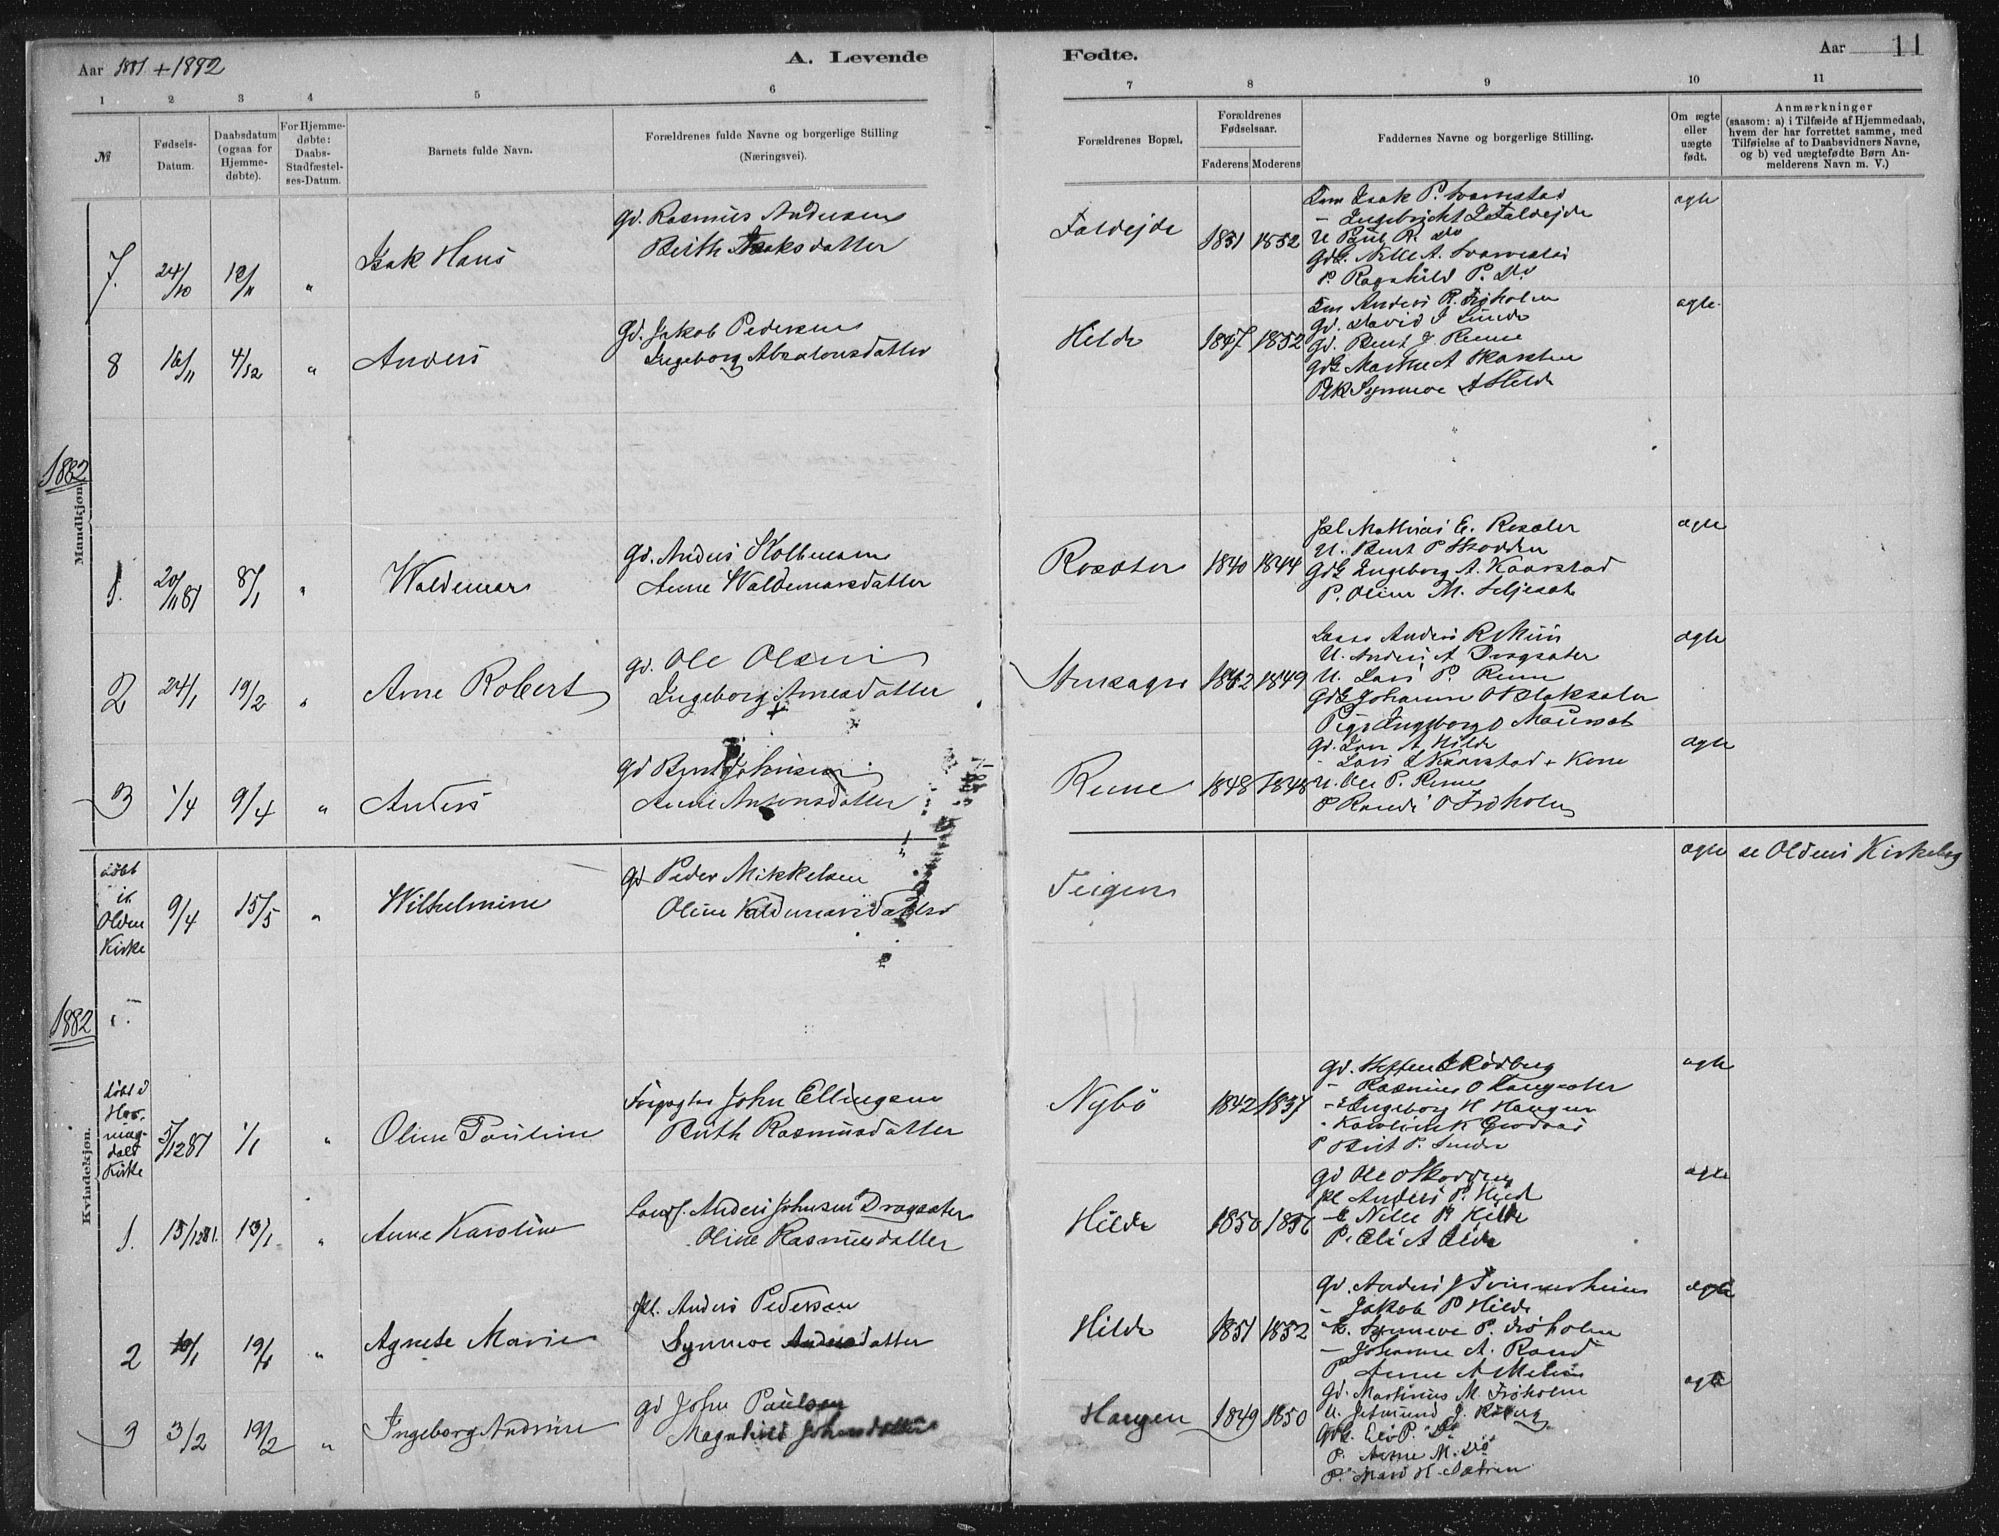 Aar 1881 + 1882
A. Levende
Fødte.
Aar 11
1 2 3 4 5 6 7 8 9 10 11
№
Fødsels-
Datum.
Daabsdatum
(ogsaa for
Hjemme-
døbte).
For Hjemme-
døbte:
Daabs-
Stadfæstel-
ses-Datum.
Barnets fulde Navn.
Forældrenes fulde Navne og borgerlige Stilling
(Næringsvei).
Forældrenes Bopæl.
Forældrenes
Fødselsaar.
Faderens Moderens
Faddernes Navne og borgerlige Stilling.
Om ægte
eller
uægte
født.
Anmærkninger
(saasom: a) i Tilfælde af Hjemmedaab,
hvem der har forrettet samme, med
Tilføielse af to Daabsvidners Navne,
og b) ved uægtefødte Børn An-
melderens Navn m. V.)
7. 24/10 "
Isak Hans
Gd. Rasmus Andersen
Berith Isaksdatter
Faldejde
1851 1852
Isak P.
- Ingebricht
U Paul R. Do
GdE. Nille A.
P. Ragnhild P. Do
ægte
8 16/11 4/12 "
Anders
Gd. Jakob Pedersen
Ingeborg Absalonsdatter
Hilde
1847 1852
Anders R. Frøholm
Gd. David J Sunde
Gd. Bent J Rune
GdE Marthe A
Synneve A Hilde
ægte
1882
Mandkjøn.
1. 20/11 81 8/1 "
Waldemar
Gd. Anders Kolbensen
Anne Waldemarsdatter
Rosæter
1840 1844
Mathias E. Rosæter
U. Bent P Skodden
GdE Ingeborg A. Kaarstad
P. Oline M. Seljeset
ægte
2 24/1 19/2 "
Arne Robert
Gd. Ole Olsen
Ingeborg Arnesdatter
1849
Anders R
U. Anders A Dragsæter
U. Lars P. Rune
GdE Johanne O
Pige Ingeborg O Maurset
ægte
3 1/4 9/4 "
Anders
Gd Bent Johnsen
Anne Antonsdatter
Rune
1848 1848
Gd. Lars A. Hilde
- Lars Kaarstad + Kone
U. Ole P. Rune
P Randi O Frøholm
ægte
døbt
i
Olden
Kirke
9/4 15/5 "
Wilhelmine
Gd Peder Mikkelsen
Oline Valdemarsdatter
Teigen
ægte se Oldens Kirkebog
1882
Kvindekjøn.
døbt i
Hor-
ning-
dals
Kirke
5/12 81 1/1 "
Oline Pauline
Forpagter John Ellingsen
Berith Rasmusdatter
Nybø
1842 1837
Gd. Rødberg
- Rasmus O
- E Ingeborg H Haugen
- Karoline K
P Berit P. Sunde
ægte
1. 15/12 81. 15/1 "
Anne Karoline
Anders Johnsen Dragsæter
Oline Rasmusdatter
Hilde
1850
Gd Ole O Skodden
Anders P. Hilde
- E Nille R Hilde
P. Eli A
ægte
2 "
Agnete Marie
Anders Pedersen
Synneve Andersdatter
Hilde
1851 1852
Gd. Anders J Tvinnereim
- Jakob P Hilde
- E. Synneve P. Frøholm
- Johanne A. Rand
P Anne A
ægte
3 3/2 19/2 "
Ingeborg Andrine
Gd John Paulsen
Magnhild Johansdatter
Haugen
1849 1850
Gd. Martinus M. Frøholm
U. Jetmund J.
GdE. Eli P. Do
P. Anne M. Do
P. Mari H. Sætren
ægte